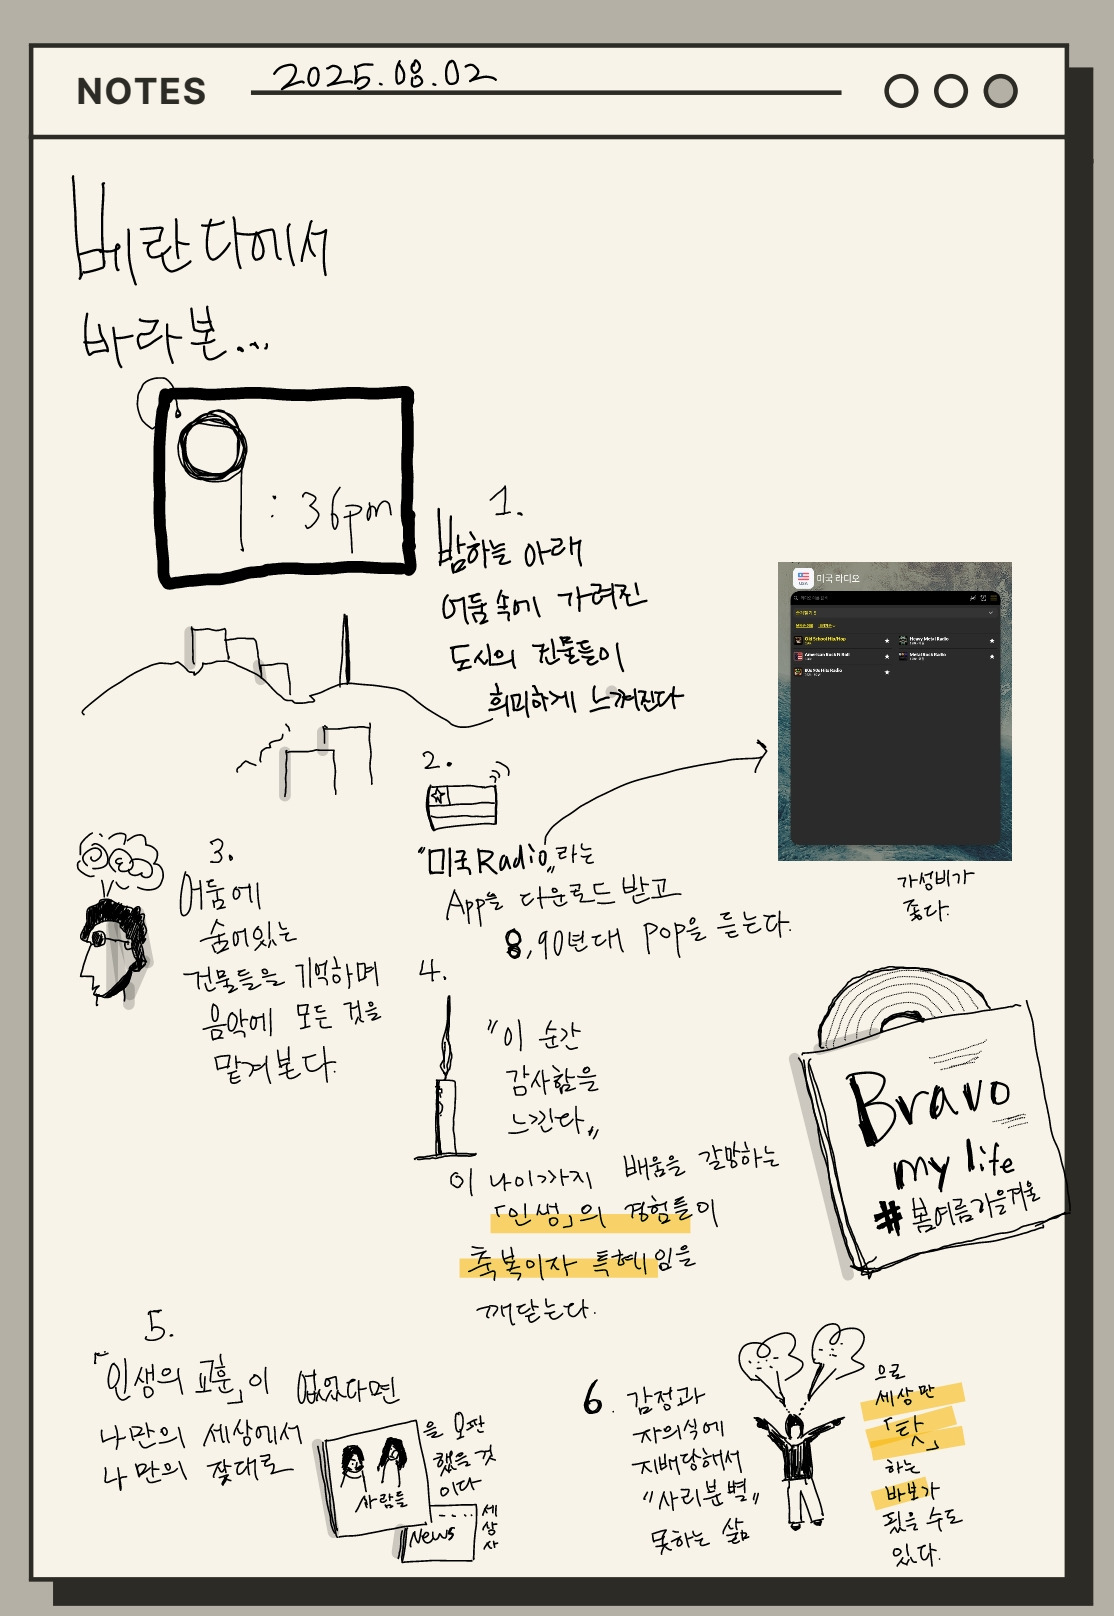 NOTES
2025.08.02
베란다에서
바라본...
: 36pm
1.
밤하늘 아래
어둠속에 가려진
도시의 건물들이
희미하게 느껴진다
2.
"미국 Radio„라는
App을 다운로드 받고
8,90년대 pop을 듣는다.
미국 라디오
Old School Hip/Hop
Heavy Metal Radio
American Rock N Roll
Metal Rock Radio
80s 90s Hits Radio
가성비가
좋다.
3.
어둠에
숨어있는
건물들을 기억하며
음악에 모든 것을
맡겨본다.
4.
"이 순간
감사함을
느낀다„
이 나이까지 배움을 갈망하는
「인생」의 경험들이
축복이자 특혜임을
깨닫는다.
Bravo
my life
#봄여름가을겨울
5.
「인생의 교훈」이 없었다면
나만의 세상에서
나만의 잣대로
사람들
News
세
상
사
을 오판
했을 것
이다
6. 감정과
자의식에
지배당해서
"사리분별„
못하는 삶
으로
세상만
「탓」
하는
바보가
됬을 수도
있다.